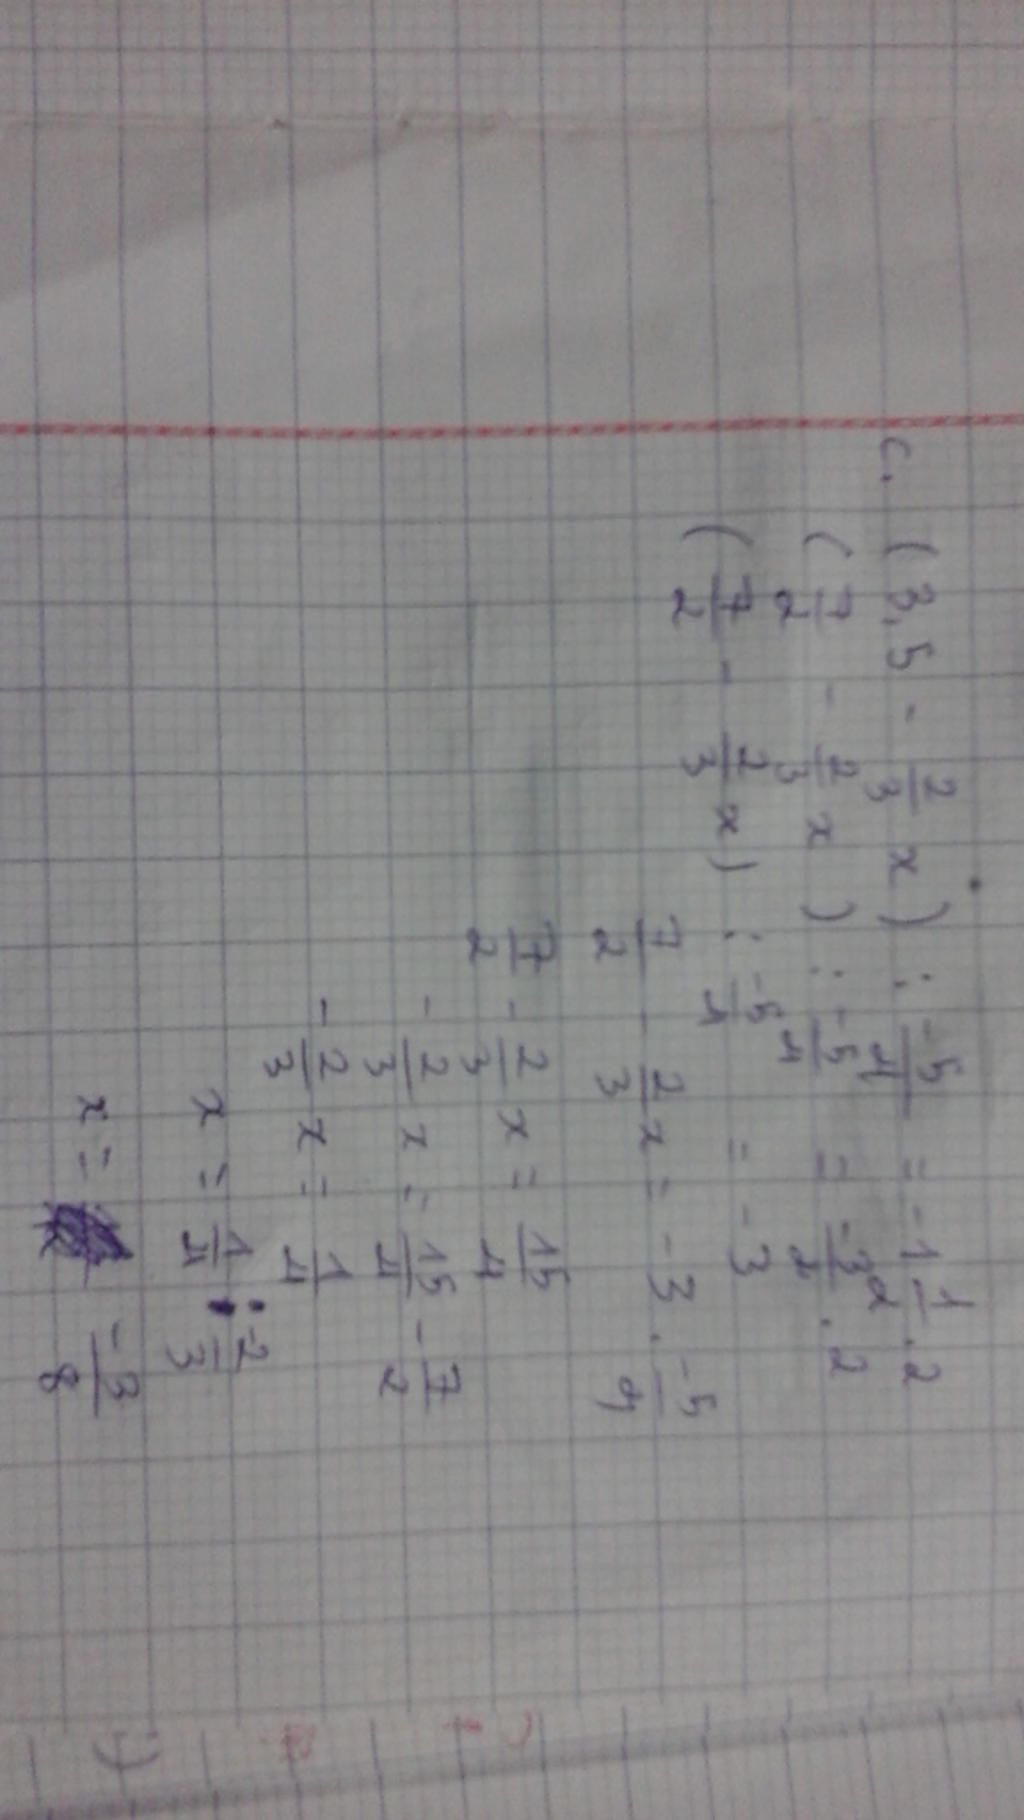 c. (3,5 - 2/3 x) : -5/4 = -1 1/2 . 2
(7/2 - 2/3 x) : -5/4 = -3/2 . 2
(7/2 - 2/3 x) : -5/4 = -3
7/2 - 2/3 x = -3 . -5/4
7/2 - 2/3 x = 15/4
- 2/3 x = 15/4 - 7/2
- 2/3 x = 1/4
x = 1/4 : -2/3
x = -3/8